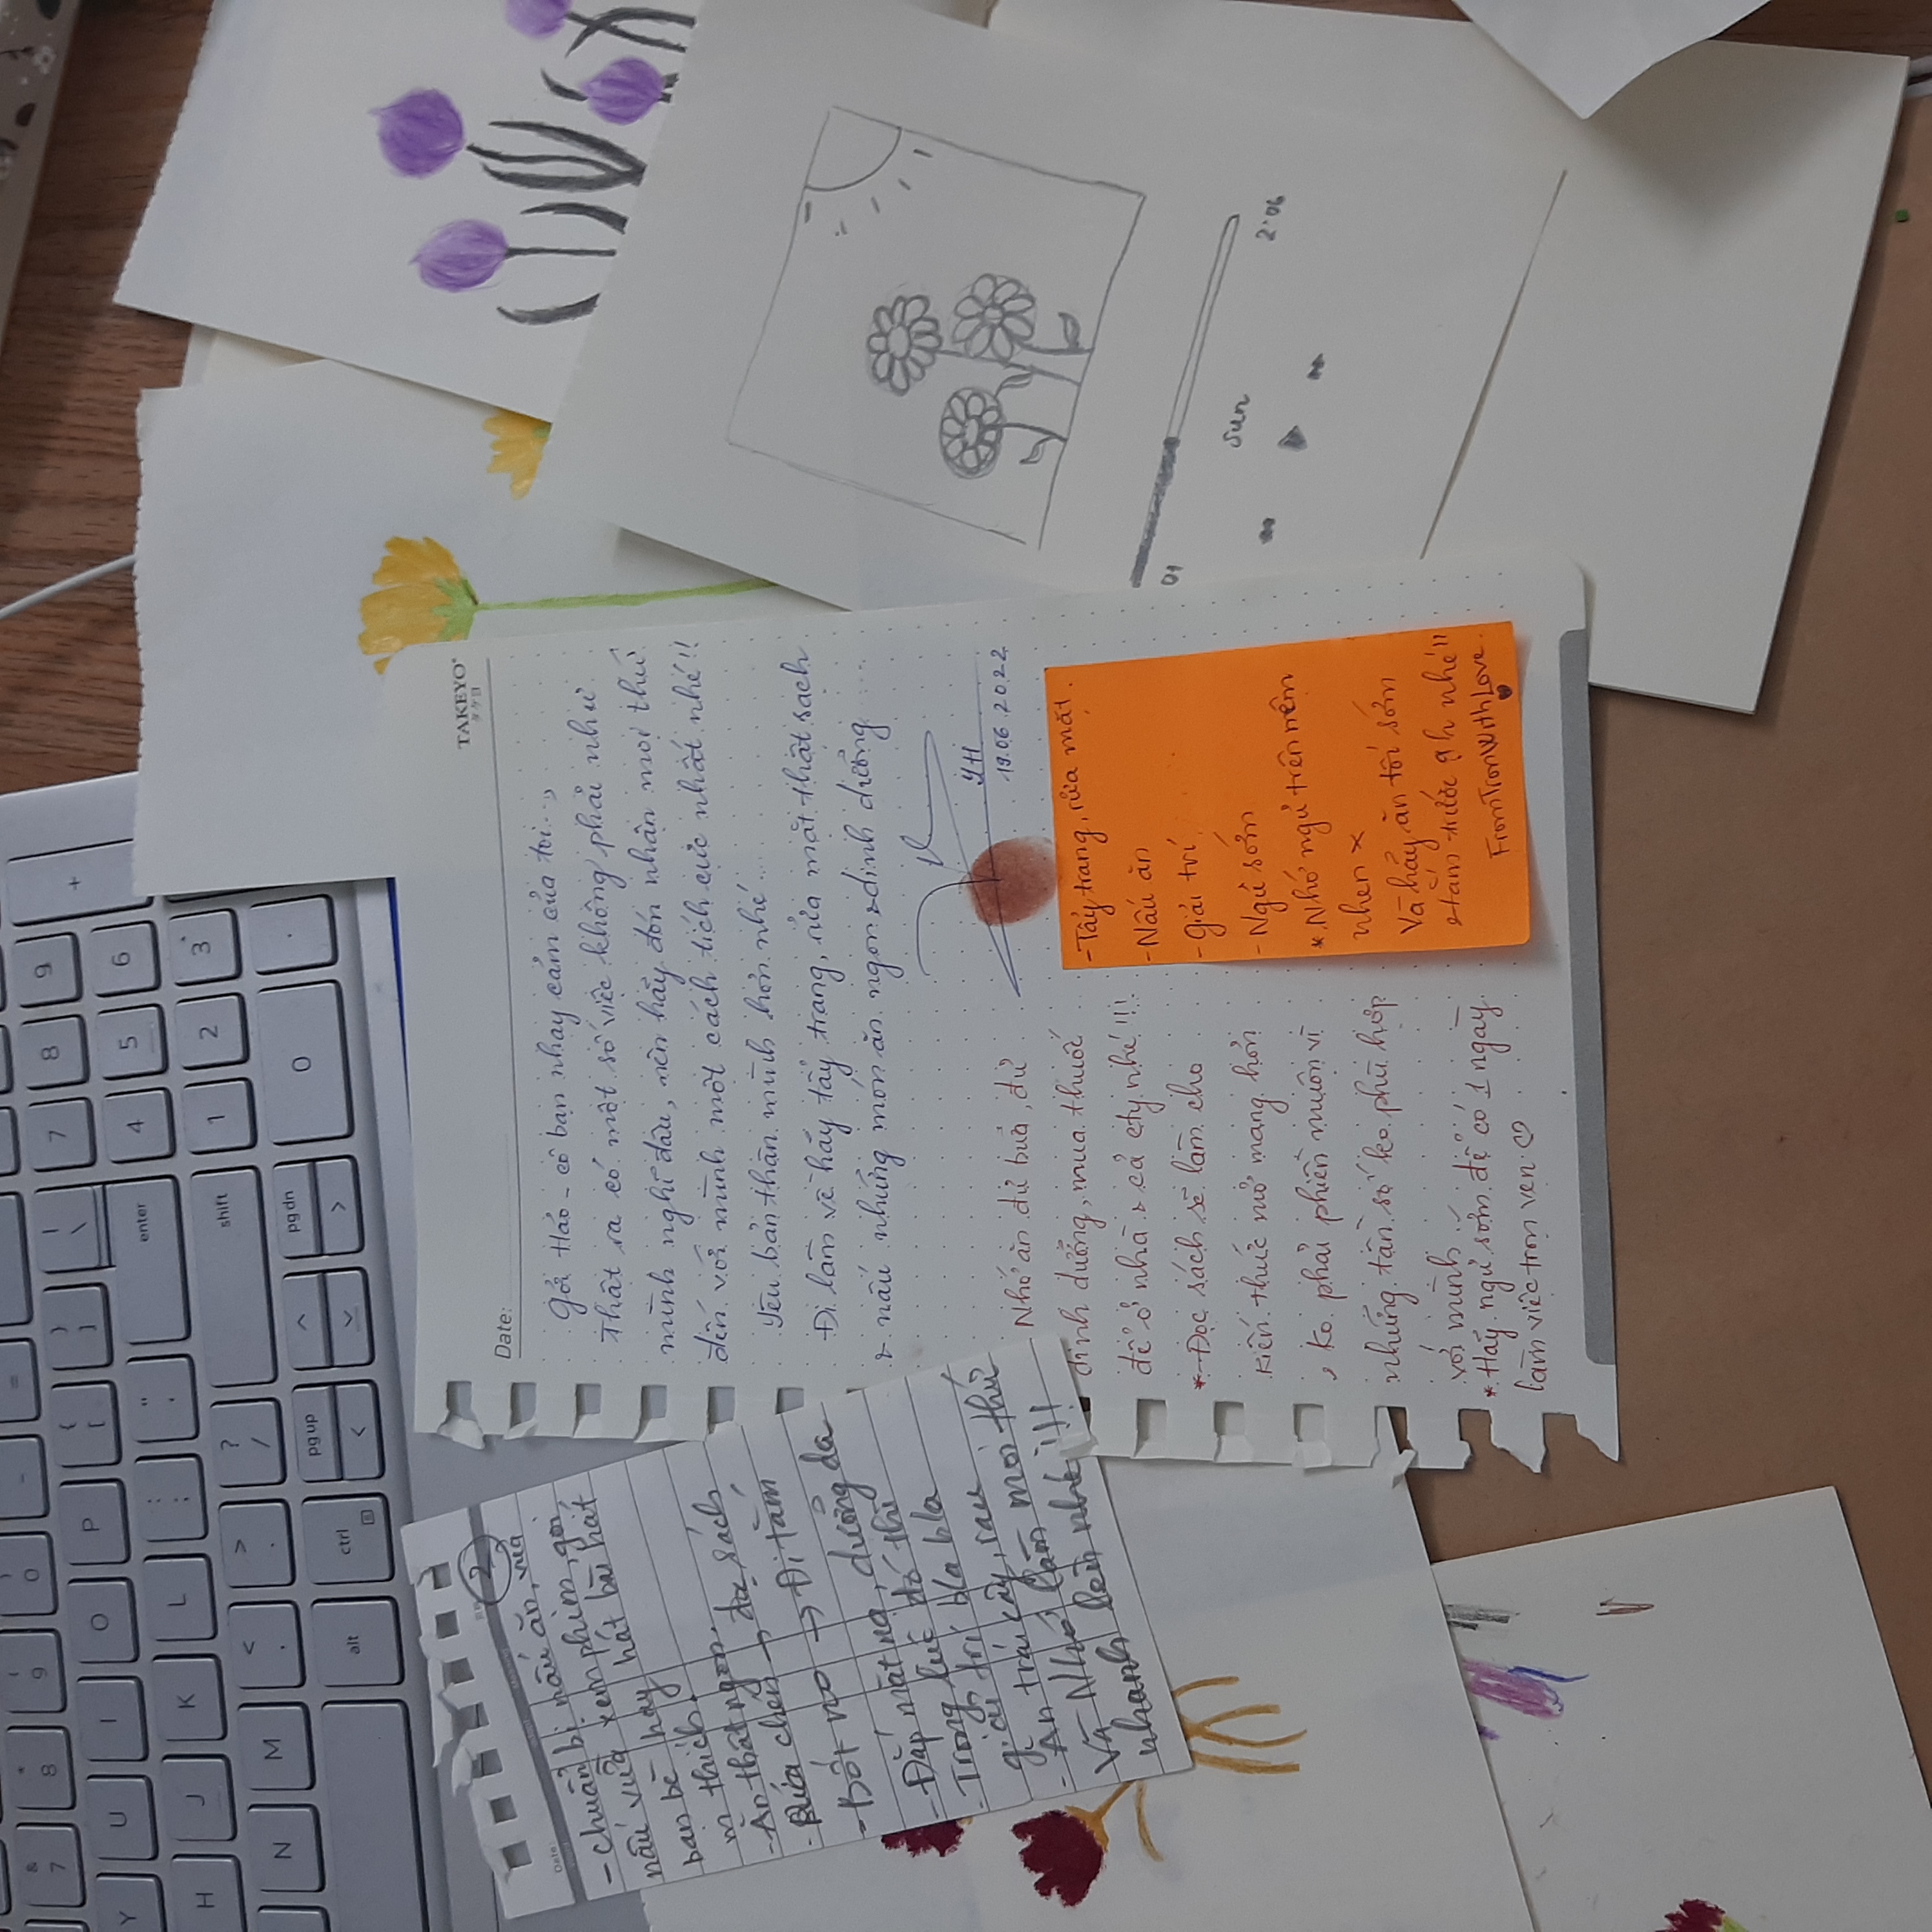 & 7
* 8
( 9
) 0
-
=
Y U I O P { [ } ] | \ 7 8 9 +
H J K L : ; " ' enter 4 5 6
N M < , > . ? / shift 1 2 3
alt ctrl pg up < ^ pg dn > 0 .
2
Date:
- chuẩn bị nấu ăn, vừa
nấu vừa xem phim, gọi
bạn bè hay hát bài hát
m thích.
- Ăn thật ngon.
- Rửa chén → đọc sách
- Bớt no → Đi tắm
- Đắp mặt nạ, dưỡng da
- Trong lúc đó thì
giải trí bla bla
- Ăn trái cây, rau
Và Nhớ làm mọi thứ
nhanh lên nhé!!!
TAKEYO
タケヨ
Date:
Gởi Hảo - cô bạn nhạy cảm của tôi...,
Thật ra có một số việc không phải như
mình nghĩ đâu, nên hãy đón nhận mọi thứ
đến với mình một cách tích cực nhất nhé!!
Yêu bản thân mình hơn nhé...
Đi làm về hãy tẩy trang, rửa mặt thật sạch
& nấu những món ăn ngon & dinh dưỡng
YH
19.06.2022
Nhớ ăn đủ bữa, đủ
dinh dưỡng, mua thuốc
để ở nhà & cả cty nhé!!!
* Đọc sách sẽ làm cho
kiến thức mở mang hơn
, ko phải phiền muộn vì
những tần số ko phù hợp
với mình
* Hãy ngủ sớm để có 1 ngày
làm việc trọn vẹn ♡
- Tẩy trang, rửa mặt.
- Nấu ăn
- Giải trí
- Ngủ sớm
* Nhớ ngủ trên nệm
nhen ×
Và hãy ăn tối sớm
& tắm trước 9h nhé!!
FromTronWithLove
01
Sun
2:06